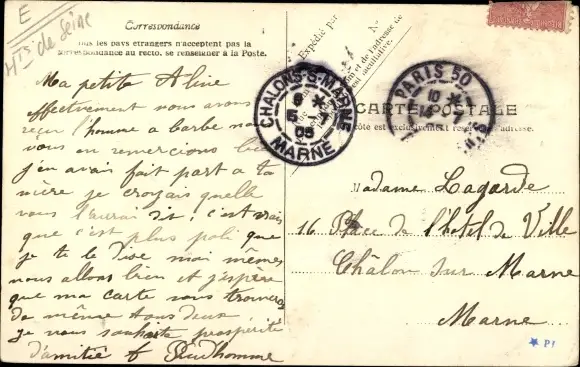 E
Hts de Seine
Correspondance
Tous les pays étrangers n'acceptent pas la
correspondance au recto, se renseigner à la Poste.
Ma petite Aline
effectivement nous avons
reçu l'homme a barbe nous
vous en remercions bien
j'en avais fait part a ta
mère je croyais quelle
vous l'aurai dit, c'est vrais
que c'est plus poli que
je te le dise moi même
nous allons bien et j'espère
que ma carte vous trouvera
de même tous deux
je vous souhaite prospérité
d'amitié Prudhomme
Expédié par
et de l'adresse de
est facultative.
CHALONS-S-MARNE
6
5 -7
05
MARNE
PARIS 50
10
14 -7
CARTE POSTALE
côté est exclusivement réservé à l'adresse.
Madame Lagarde
16 Place de l'hotel de Ville
Châlon sur Marne
Marne
P1